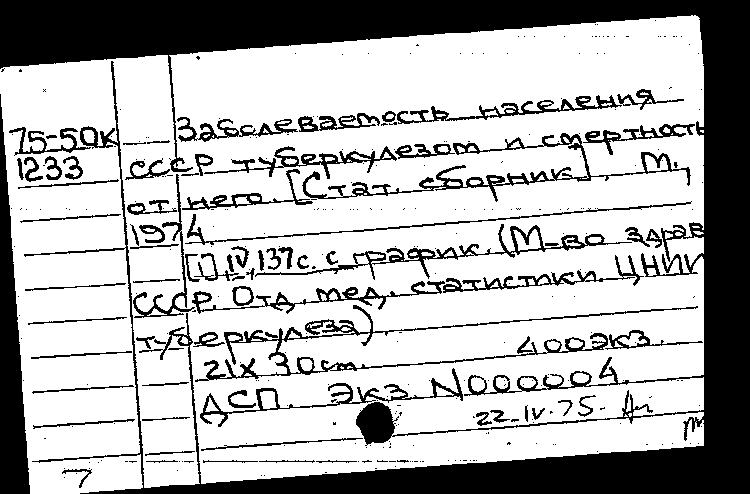 Заболеваемость населения
75-50К
1233 СССР туберкулезом и смертность
от него. [Стат. сборник]. М.,
1974.
[1], IV, 137с. с график. (М-во здрав
СССР. Отд. мед. статистики. ЦНИИ
туберкулеза).
21х30 ст. 400экз.
ДСП. Экз. N000004.
22-IV-75-
7